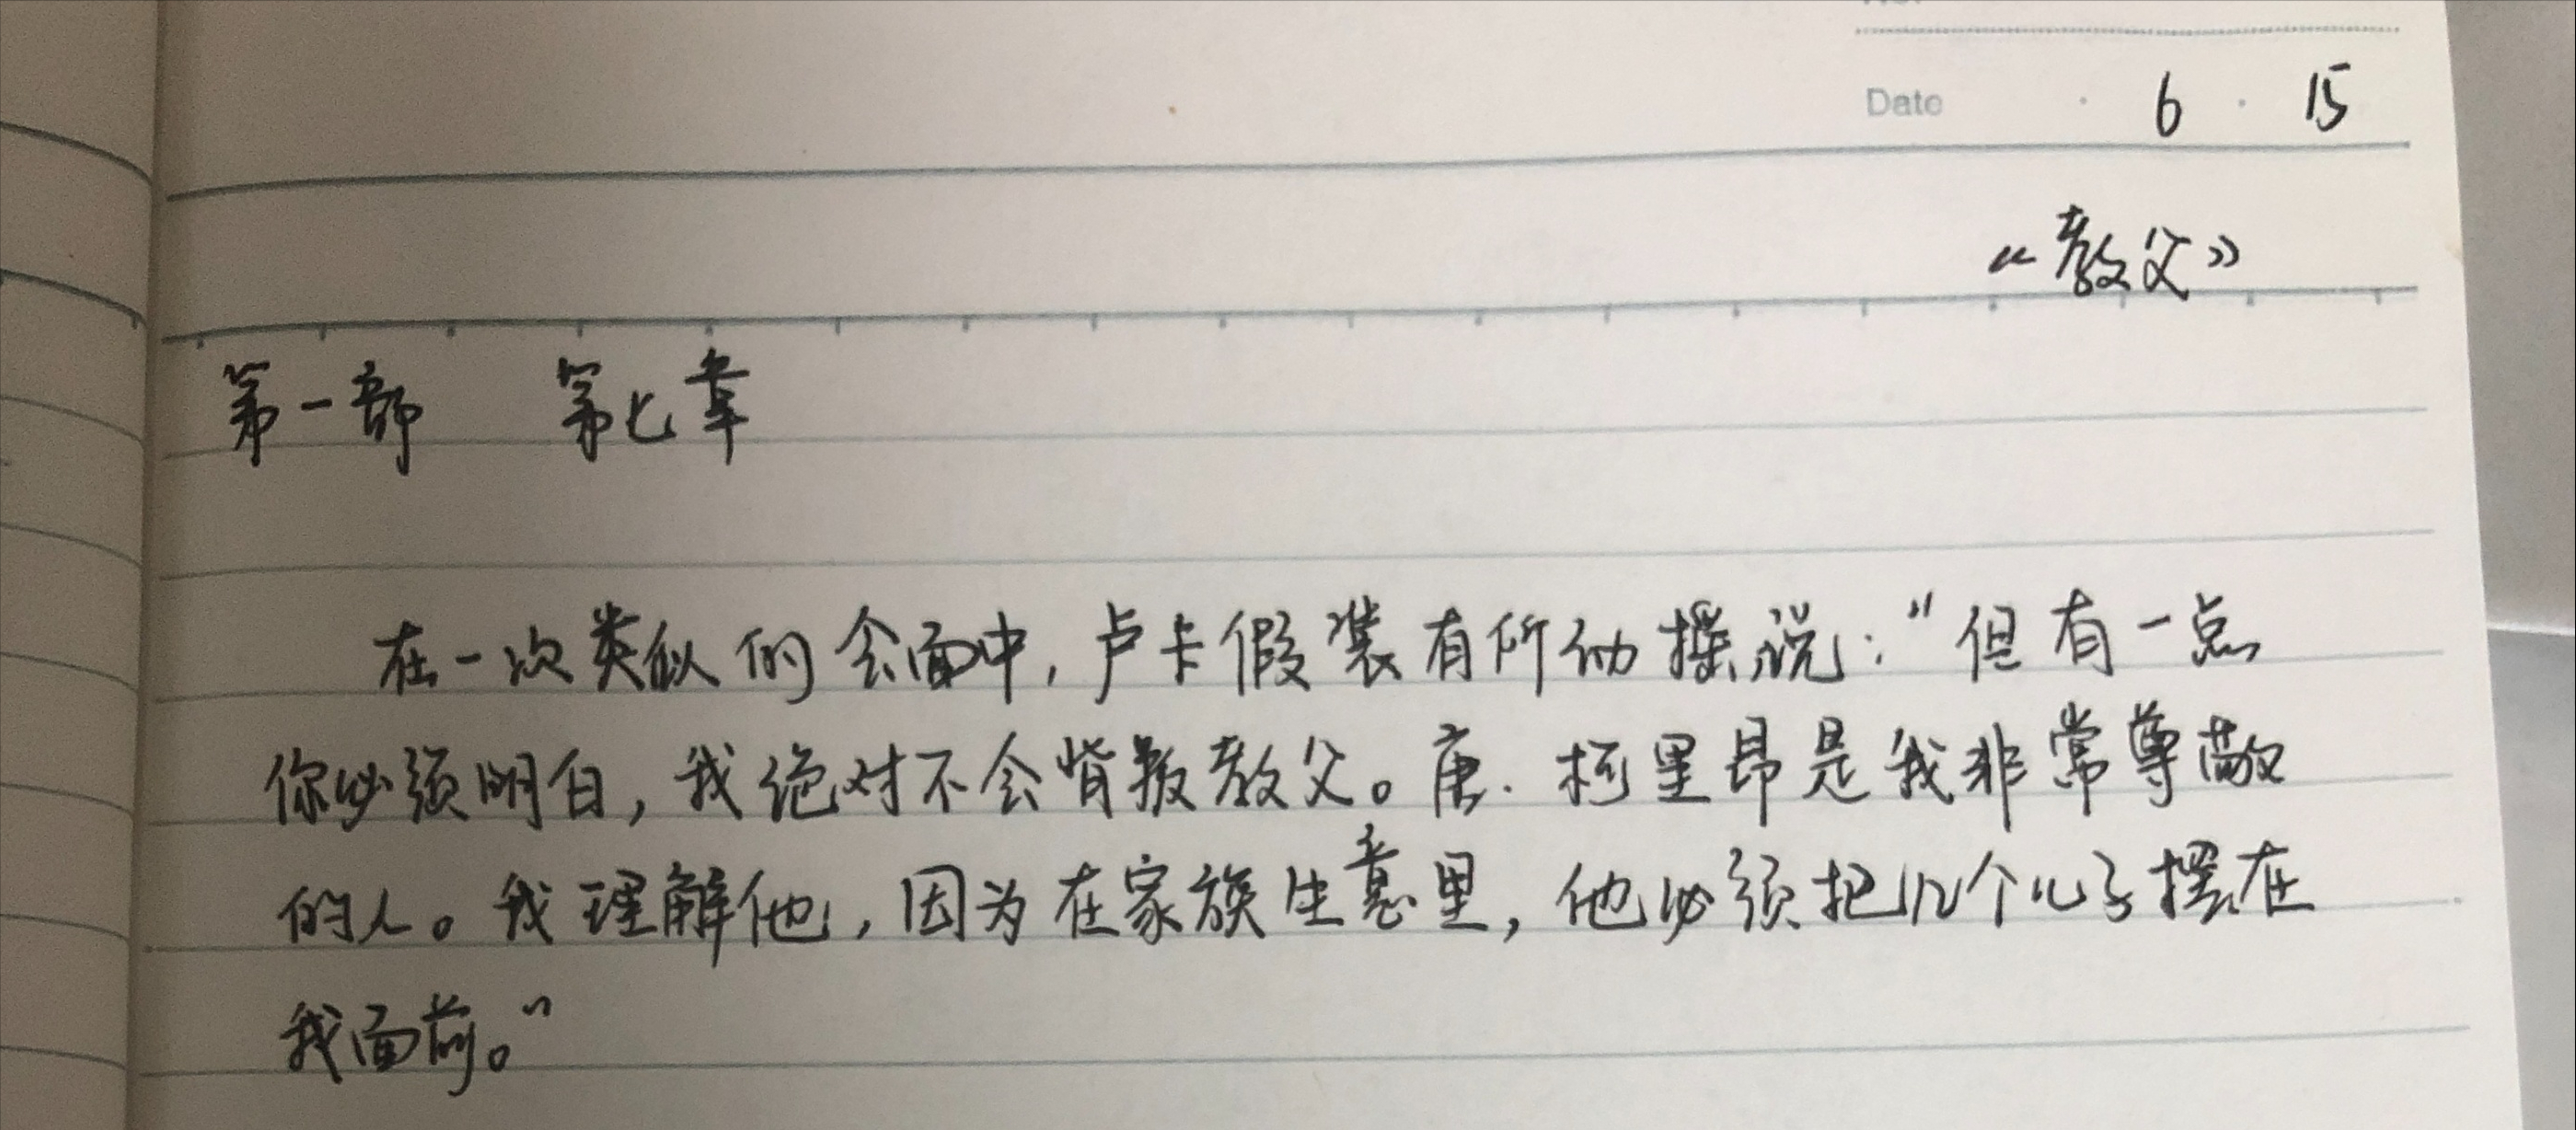 Date 6 15
《教父》
第一部 第七章
在一次类似的会面中，卢卡假装有所动摇说："但有一点
你必须明白，我绝对不会背叛教父。唐·柯里昂是我非常尊敬
的人。我理解他，因为在家族生意里，他必须把几个儿子摆在
我面前。"